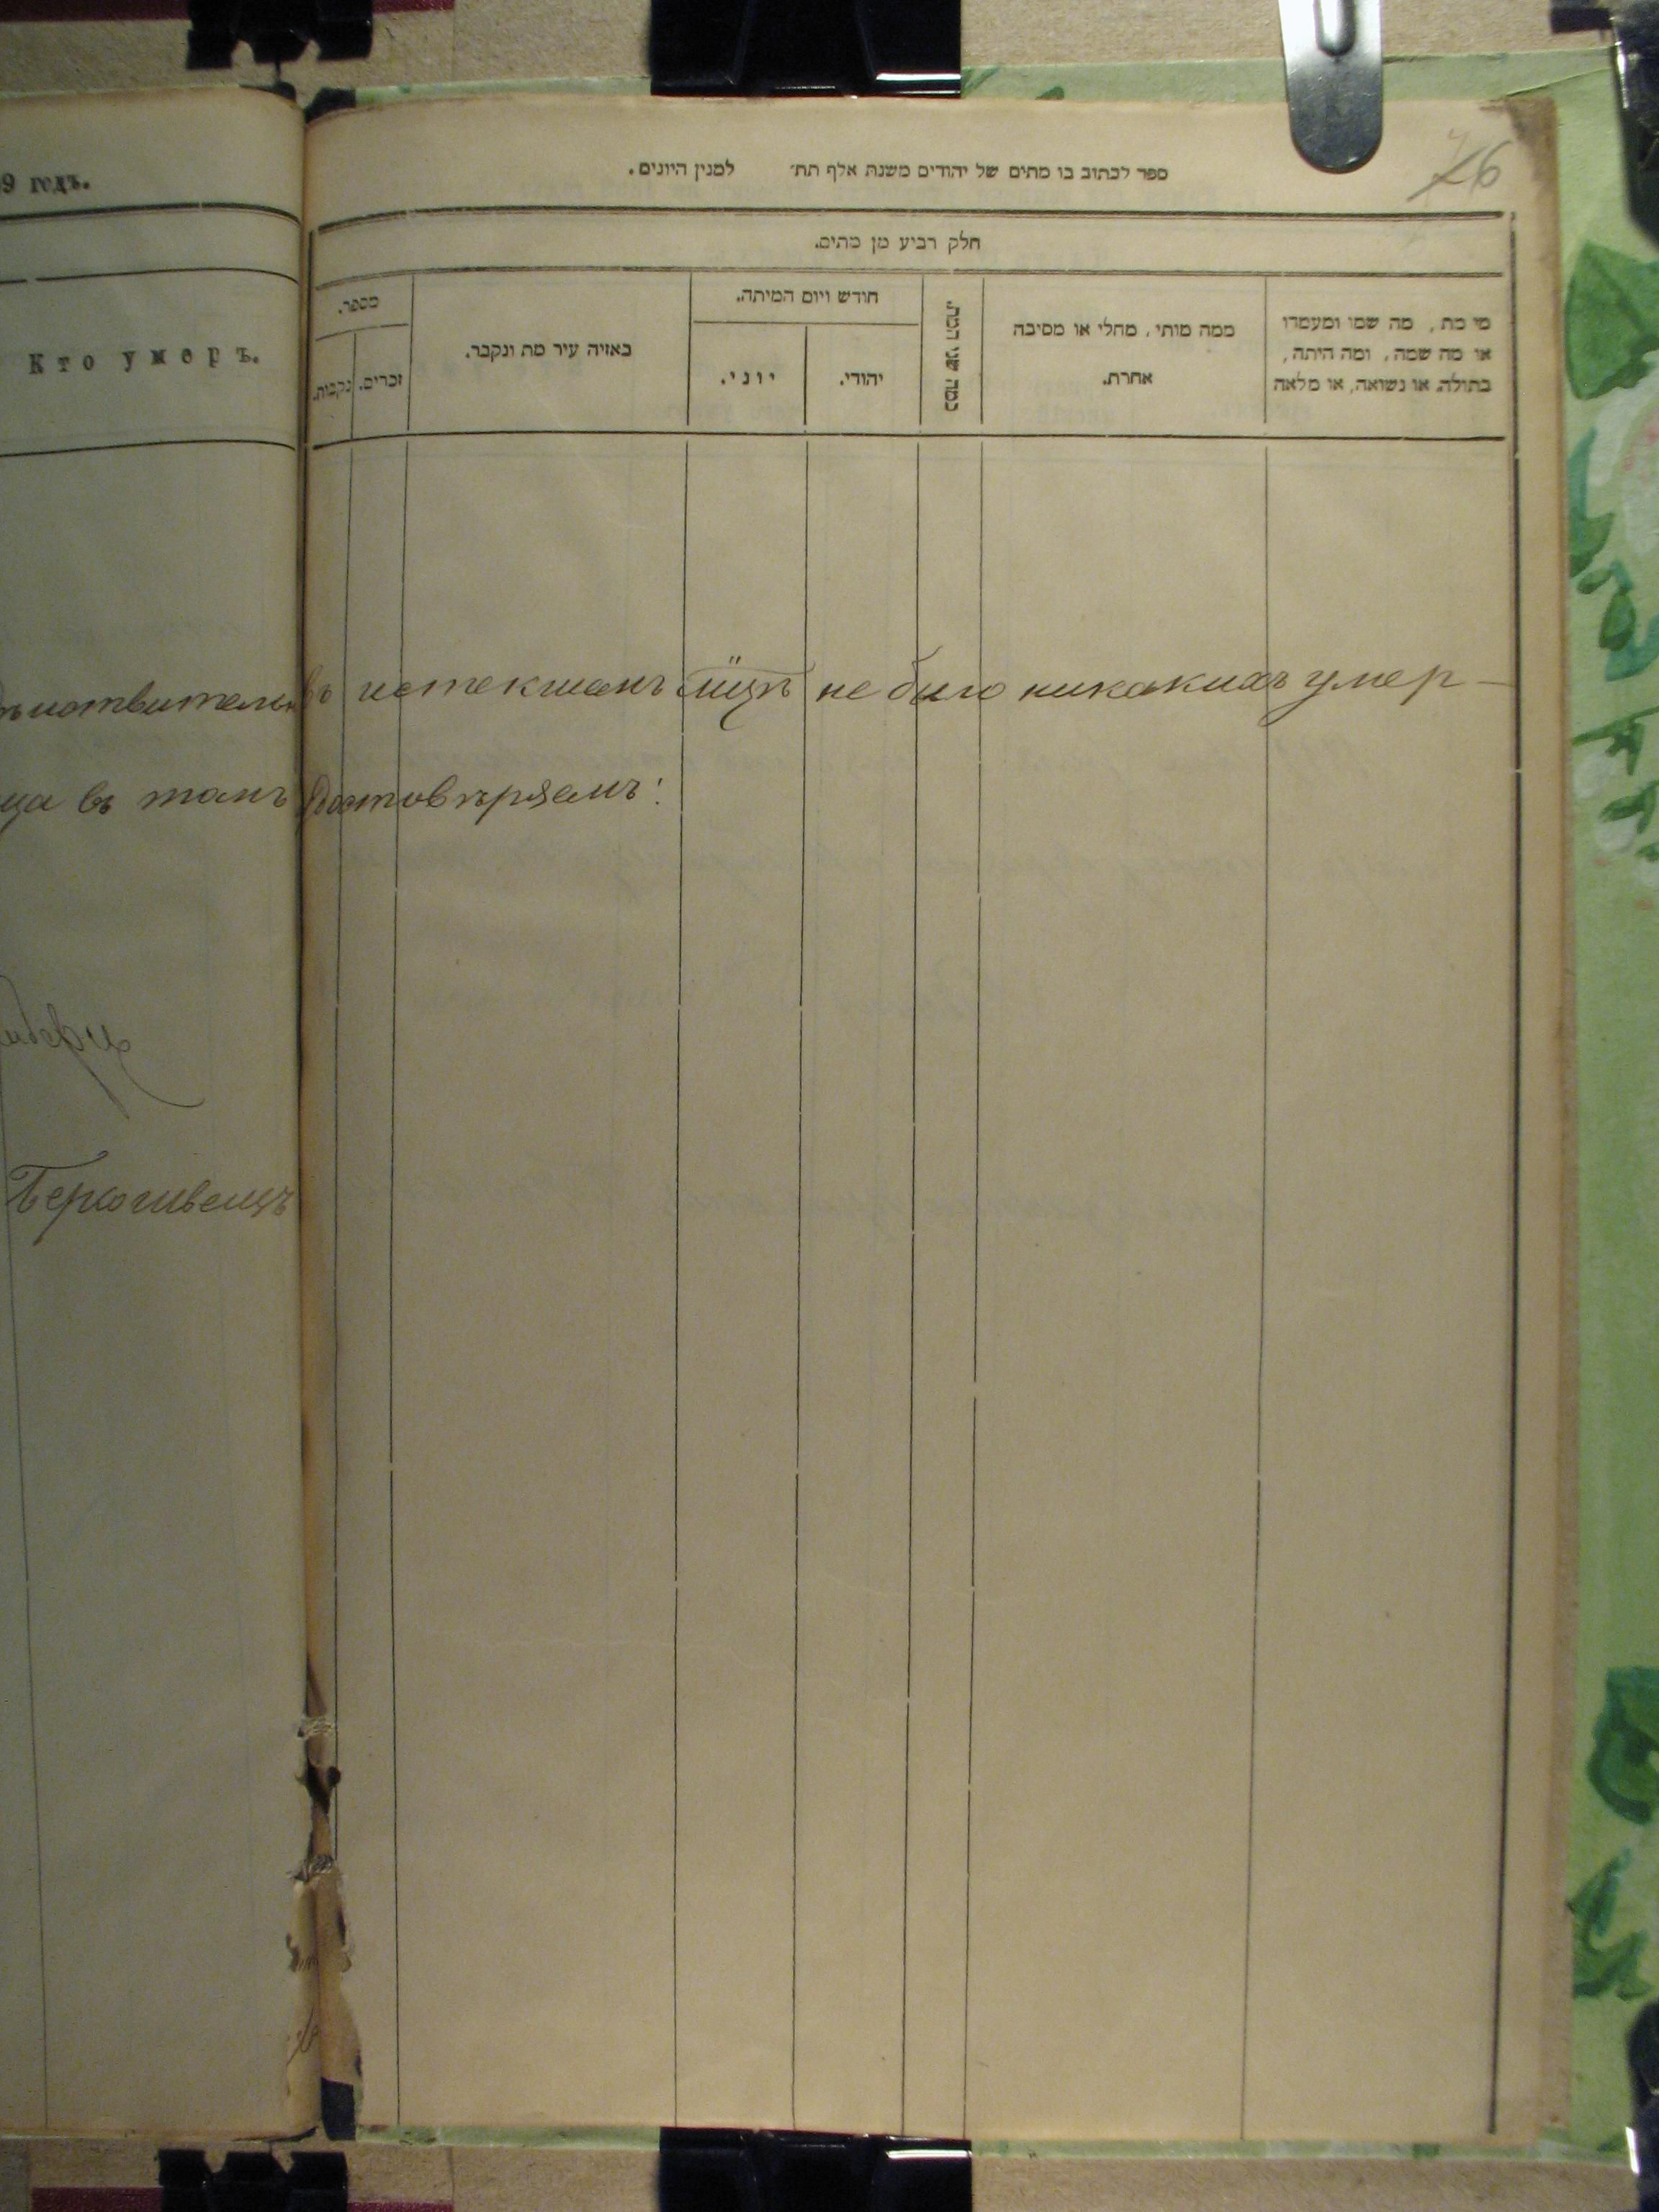 9 годъ.
Кто умеръ.
ספר לכתוב בו מתים של יהודים משנת אלף תת׳ למנין היונים.
26
חלק רביע מן מתים.
מי מת, מה שמו ומעמדו
או מה שמה, ומה היתה,
בתולה או נשואה, או מלאה
ממה מותי, מחלי או מסיבה
אחרת.
כמה שני המת.
חודש ויום המיתה.
יהודי.
יוני.
באזיה עיר מת ונקבר.
מספר.
זכרים.
נקבות.
въ истекшемъ мцѣ не было никакихъ умер-
ца въ томъ удостовѣряемъ: